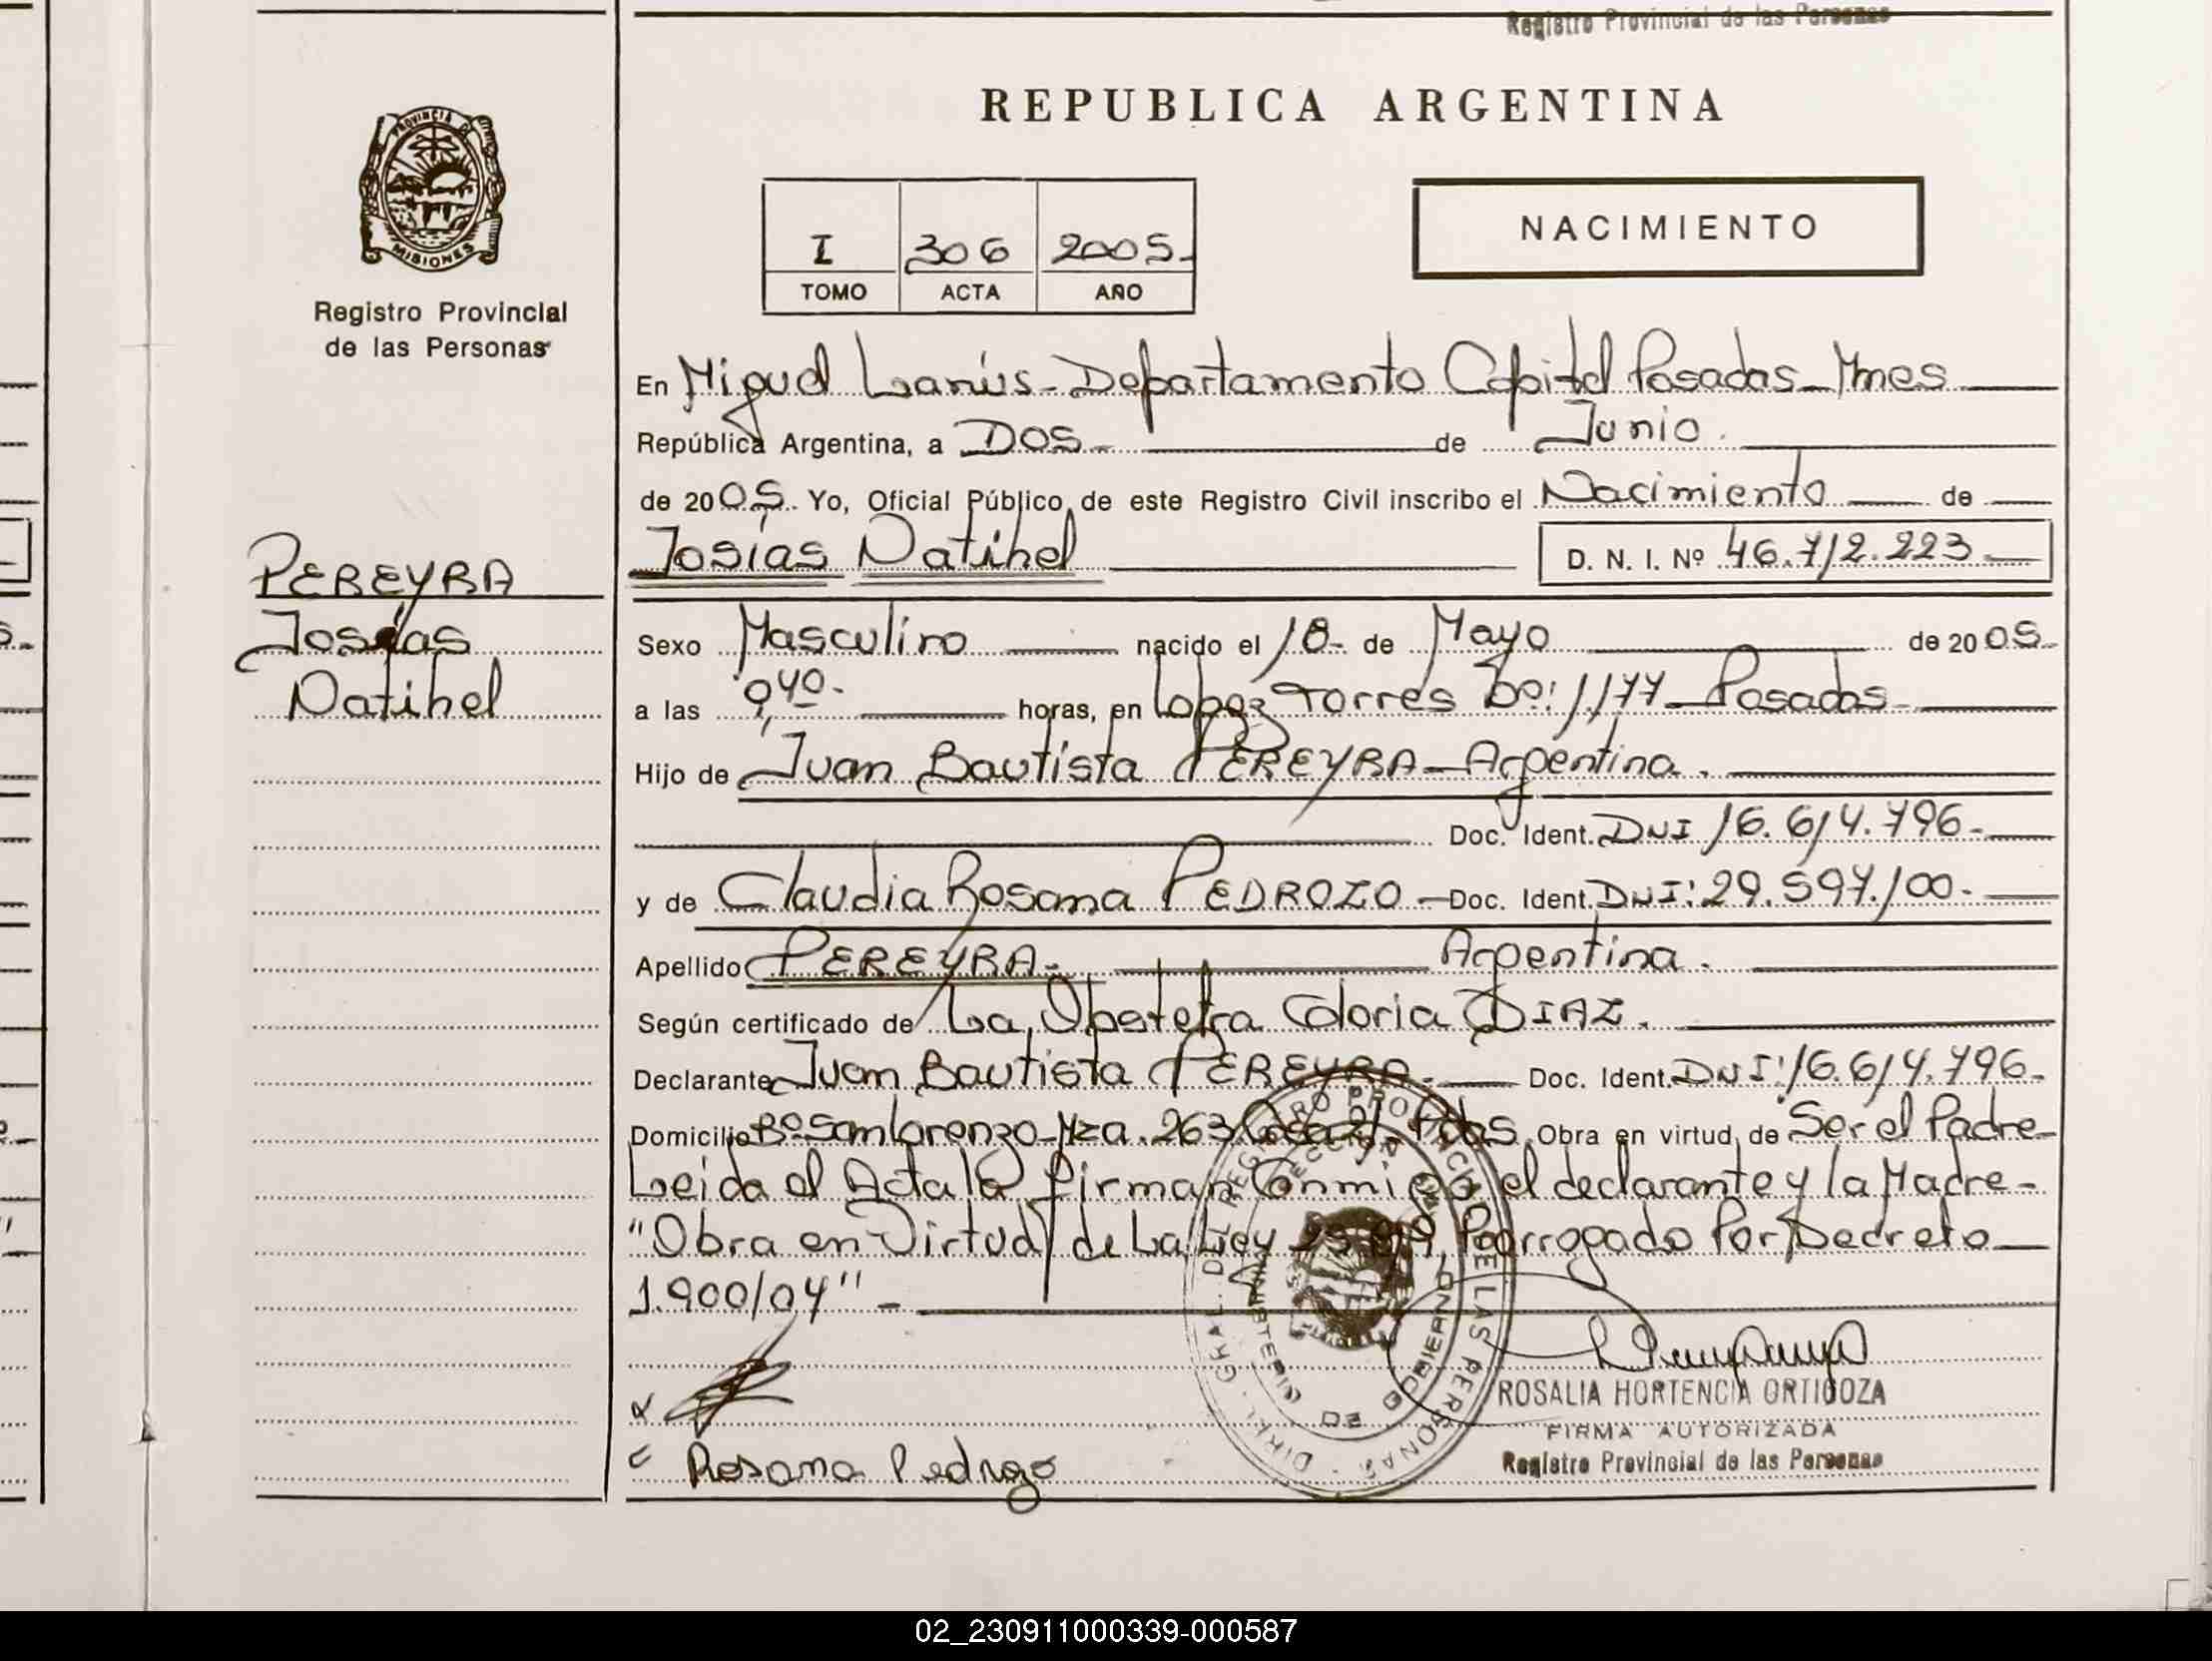 Registro Provincial de las Personas
REPUBLICA ARGENTINA
PROVINCIA DE
MISIONES
Registro Provincial
de las Personas
I 306 2005-
TOMO ACTA AÑO
NACIMIENTO
En Miguel Lanús - Departamento Capital Posadas - Mnes
República Argentina, a Dos - de Junio.
de 2005. Yo, Oficial Público de este Registro Civil inscribo el Nacimiento de
Josías Natihel D. N. I. Nº 46.712.223
PEREYRA
Josías
Natihel
Sexo Masculino nacido el 18- de Mayo de 2005-
a las 9,40- horas, en Lopez Torres Nº: 1.177 - Posadas -
Hijo de Juan Bautista PEREYRA - Argentina.
Doc. Ident. DNI 16.614.796-
y de Claudia Rosana PEDROZO - Doc. Ident. DNI: 29.597.100-
Apellido PEREYRA- Argentina.
Según certificado de La Obstetra Gloria DIAZ.
Declarante Juan Bautista PEREYRA- Doc. Ident. DNI: 16.614.796-
Domicilio Bº San Lorenzo - Mza. 263 Casa 21 - Pdas. Obra en virtud de Ser el Padre
Leida el Acta la firman Conmigo el declarante y la Madre -
"Obra en Virtud de La Ley Prorrogado Por Decreto
1.900/04" -
DIR. GRAL. DEL REGISTRO PROVINCIAL DE LAS PERSONAS
MINISTERIO DE GOBIERNO
ROSALIA HORTENCIA ORTIGOZA
FIRMA AUTORIZADA
Registro Provincial de las Personas
Rosana Pedrozo
02_230911000339-000587